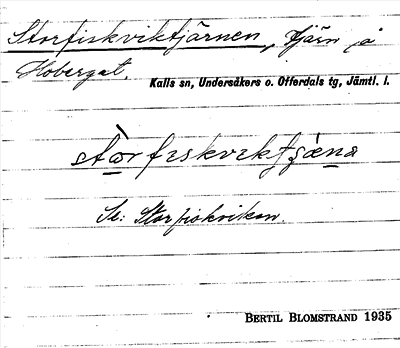 Storfiskviktjärnen, Tjärn å
Hobergat.
Kalls sn, Undersåkers o. Offerdals tg, Jämtl. l.
stòrfıskvıktjæ̀na
Se: Storfiskvikan.
BERTIL BLOMSTRAND 1935